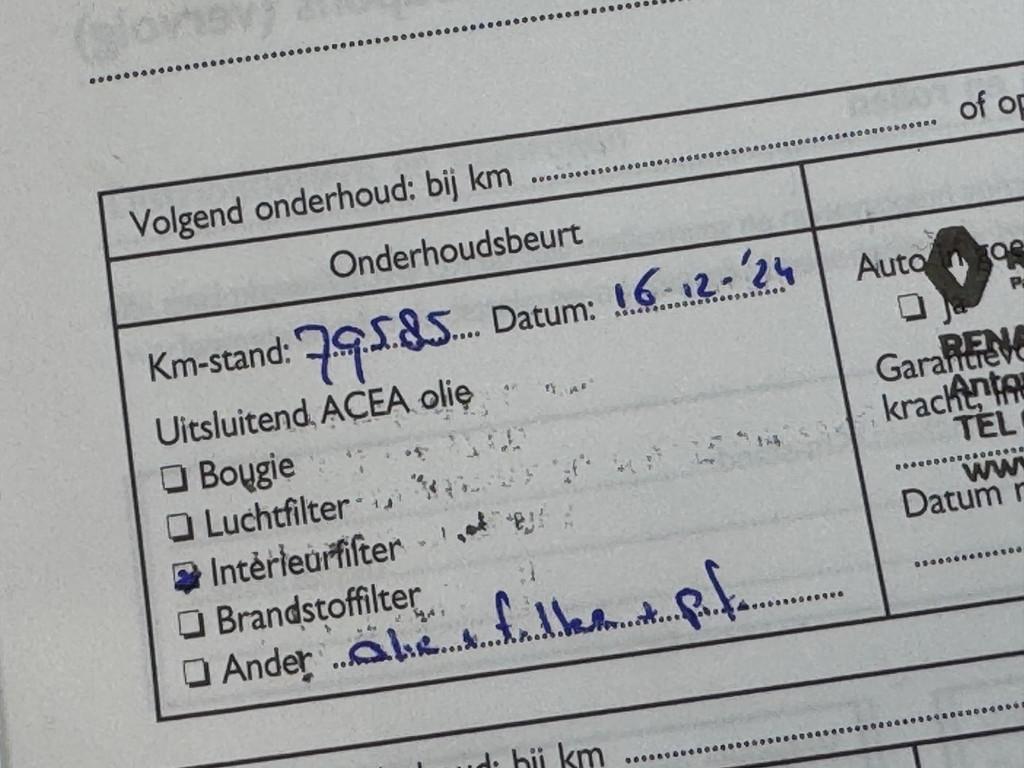 Volgend onderhoud: bij km ........ of op
Onderhoudsbeurt
Km-stand: 79585 Datum: 16-12-'24
Uitsluitend ACEA olie
Bougie
Luchtfilter
Interieurfilter
Brandstoffilter
Ander olie + filter + p.f.
Auto in goe
Ja
RENA
Garantievo
kracht, in
Anto
TEL
www
Datum
bij km